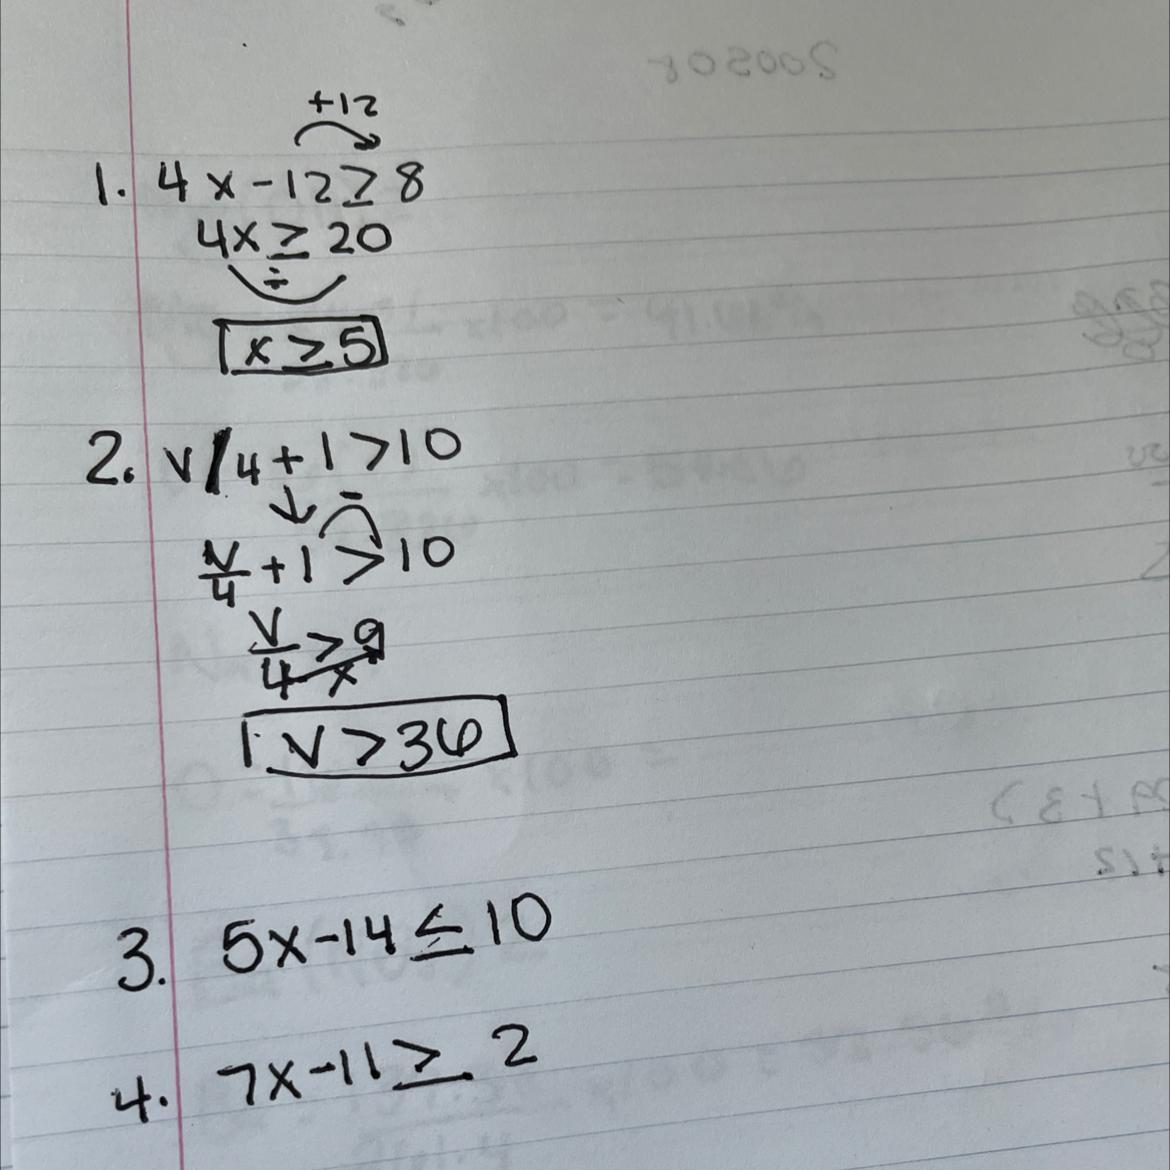 +12
1. 4x-12≥8
4x≥20
÷
x≥5
2. v/4+1>10
-
v/4+1>10
v/4>9
x
v>36
3. 5x-14≤10
4. 7x-11≥2